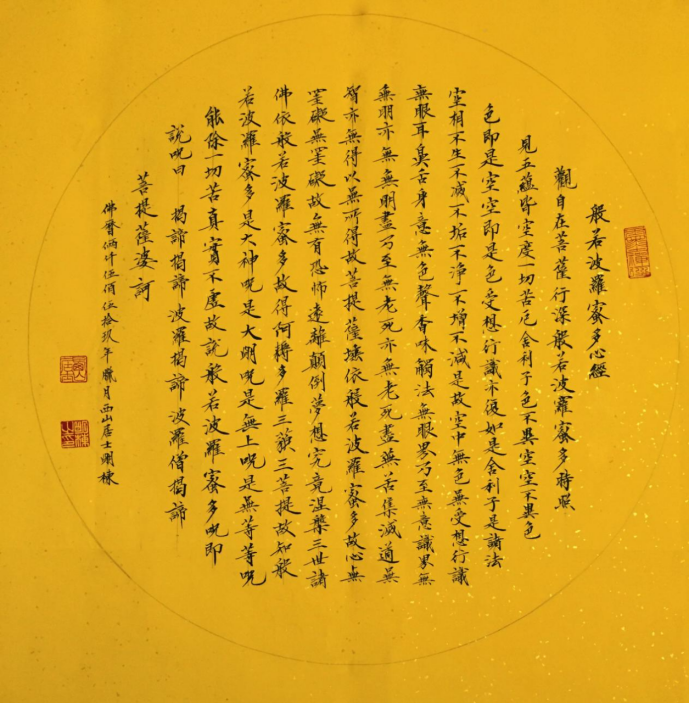 般若波羅蜜多心經
觀自在菩薩行深般若波羅蜜多時照
見五蘊皆空度一切苦厄舍利子色不異空空不異色
色即是空空即是色受想行識亦復如是舍利子是諸法
空相不生不滅不垢不淨不增不減是故空中無色無受想行識
無眼耳鼻舌身意無色聲香味觸法無眼界乃至無意識界無
無明亦無無明盡乃至無老死亦無老死盡無苦集滅道無
智亦無得以無所得故菩提薩埵依般若波羅蜜多故心無
罣礙無罣礙故無有恐怖遠離顛倒夢想究竟涅槃三世諸
佛依般若波羅蜜多故得阿耨多羅三藐三菩提故知般
若波羅蜜多是大神呪是大明呪是無上呪是無等等呪
能除一切苦真實不虛故說般若波羅蜜多呪即
說呪曰 揭諦揭諦波羅揭諦波羅僧揭諦
菩提薩婆訶
佛曆倆仟伍佰伍拾玖年臘月西山居士明棟